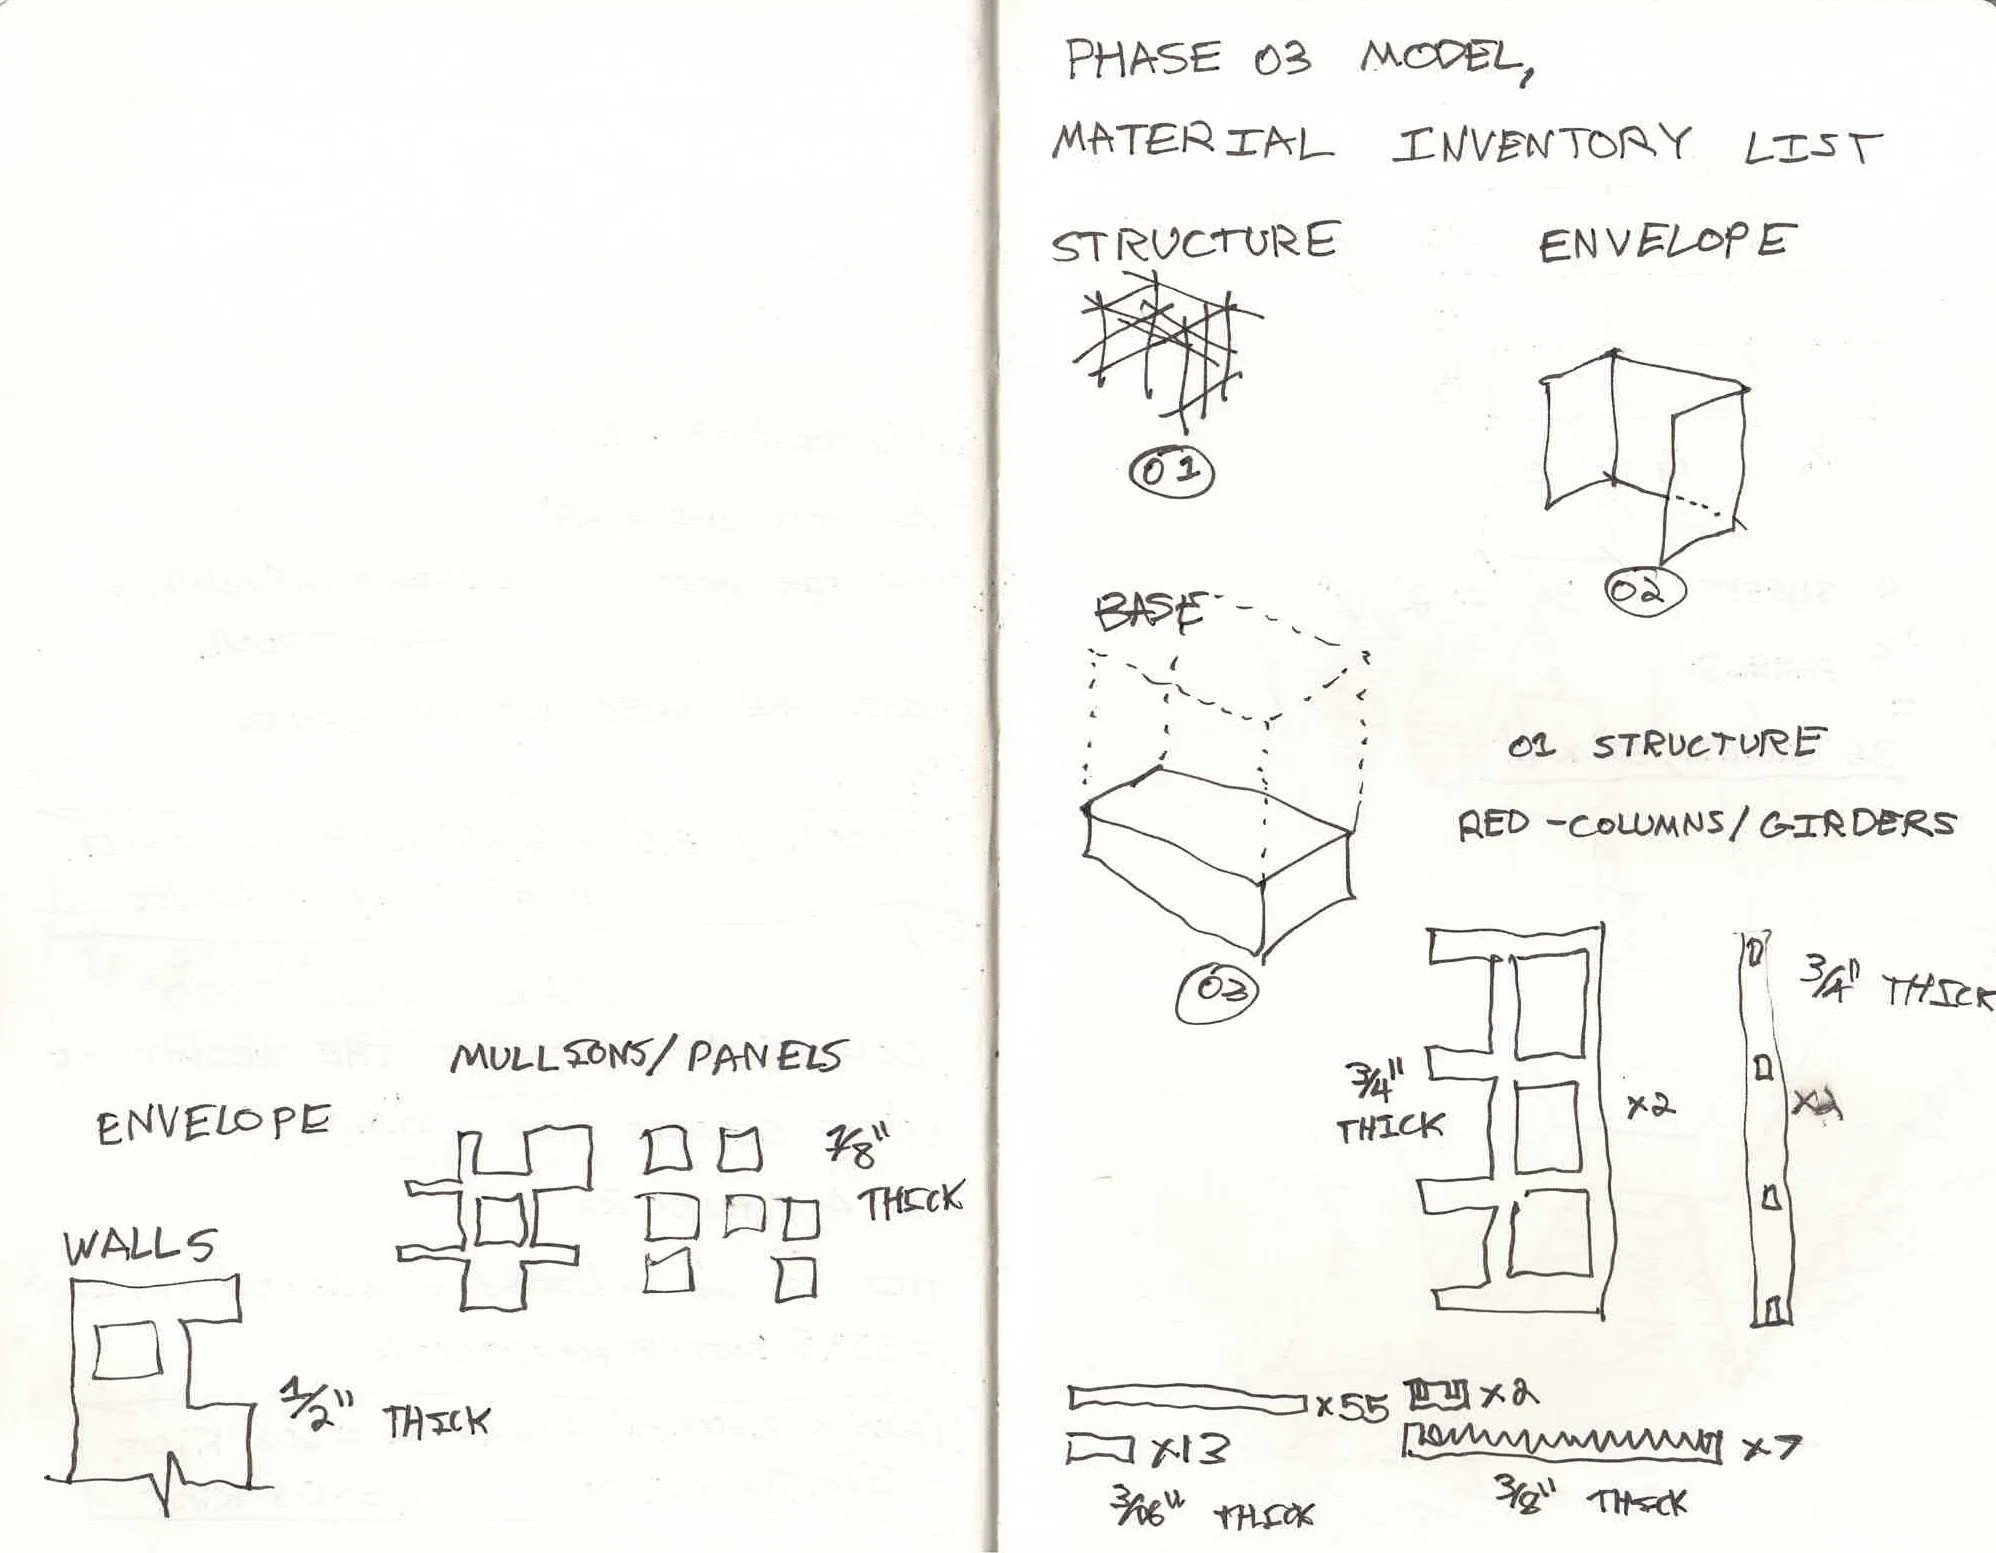 MULLIONS/PANELS
ENVELOPE
7/8"
THICK
WALLS
1/2" THICK
PHASE 03 MODEL,
MATERIAL INVENTORY LIST
STRUCTURE
ENVELOPE
01
02
BASE
03
01 STRUCTURE
RED-COLUMNS/GIRDERS
3/4" THICK
3/4"
THICK
x2
x2
x55
x2
x13
x7
THICK
3/8" THICK